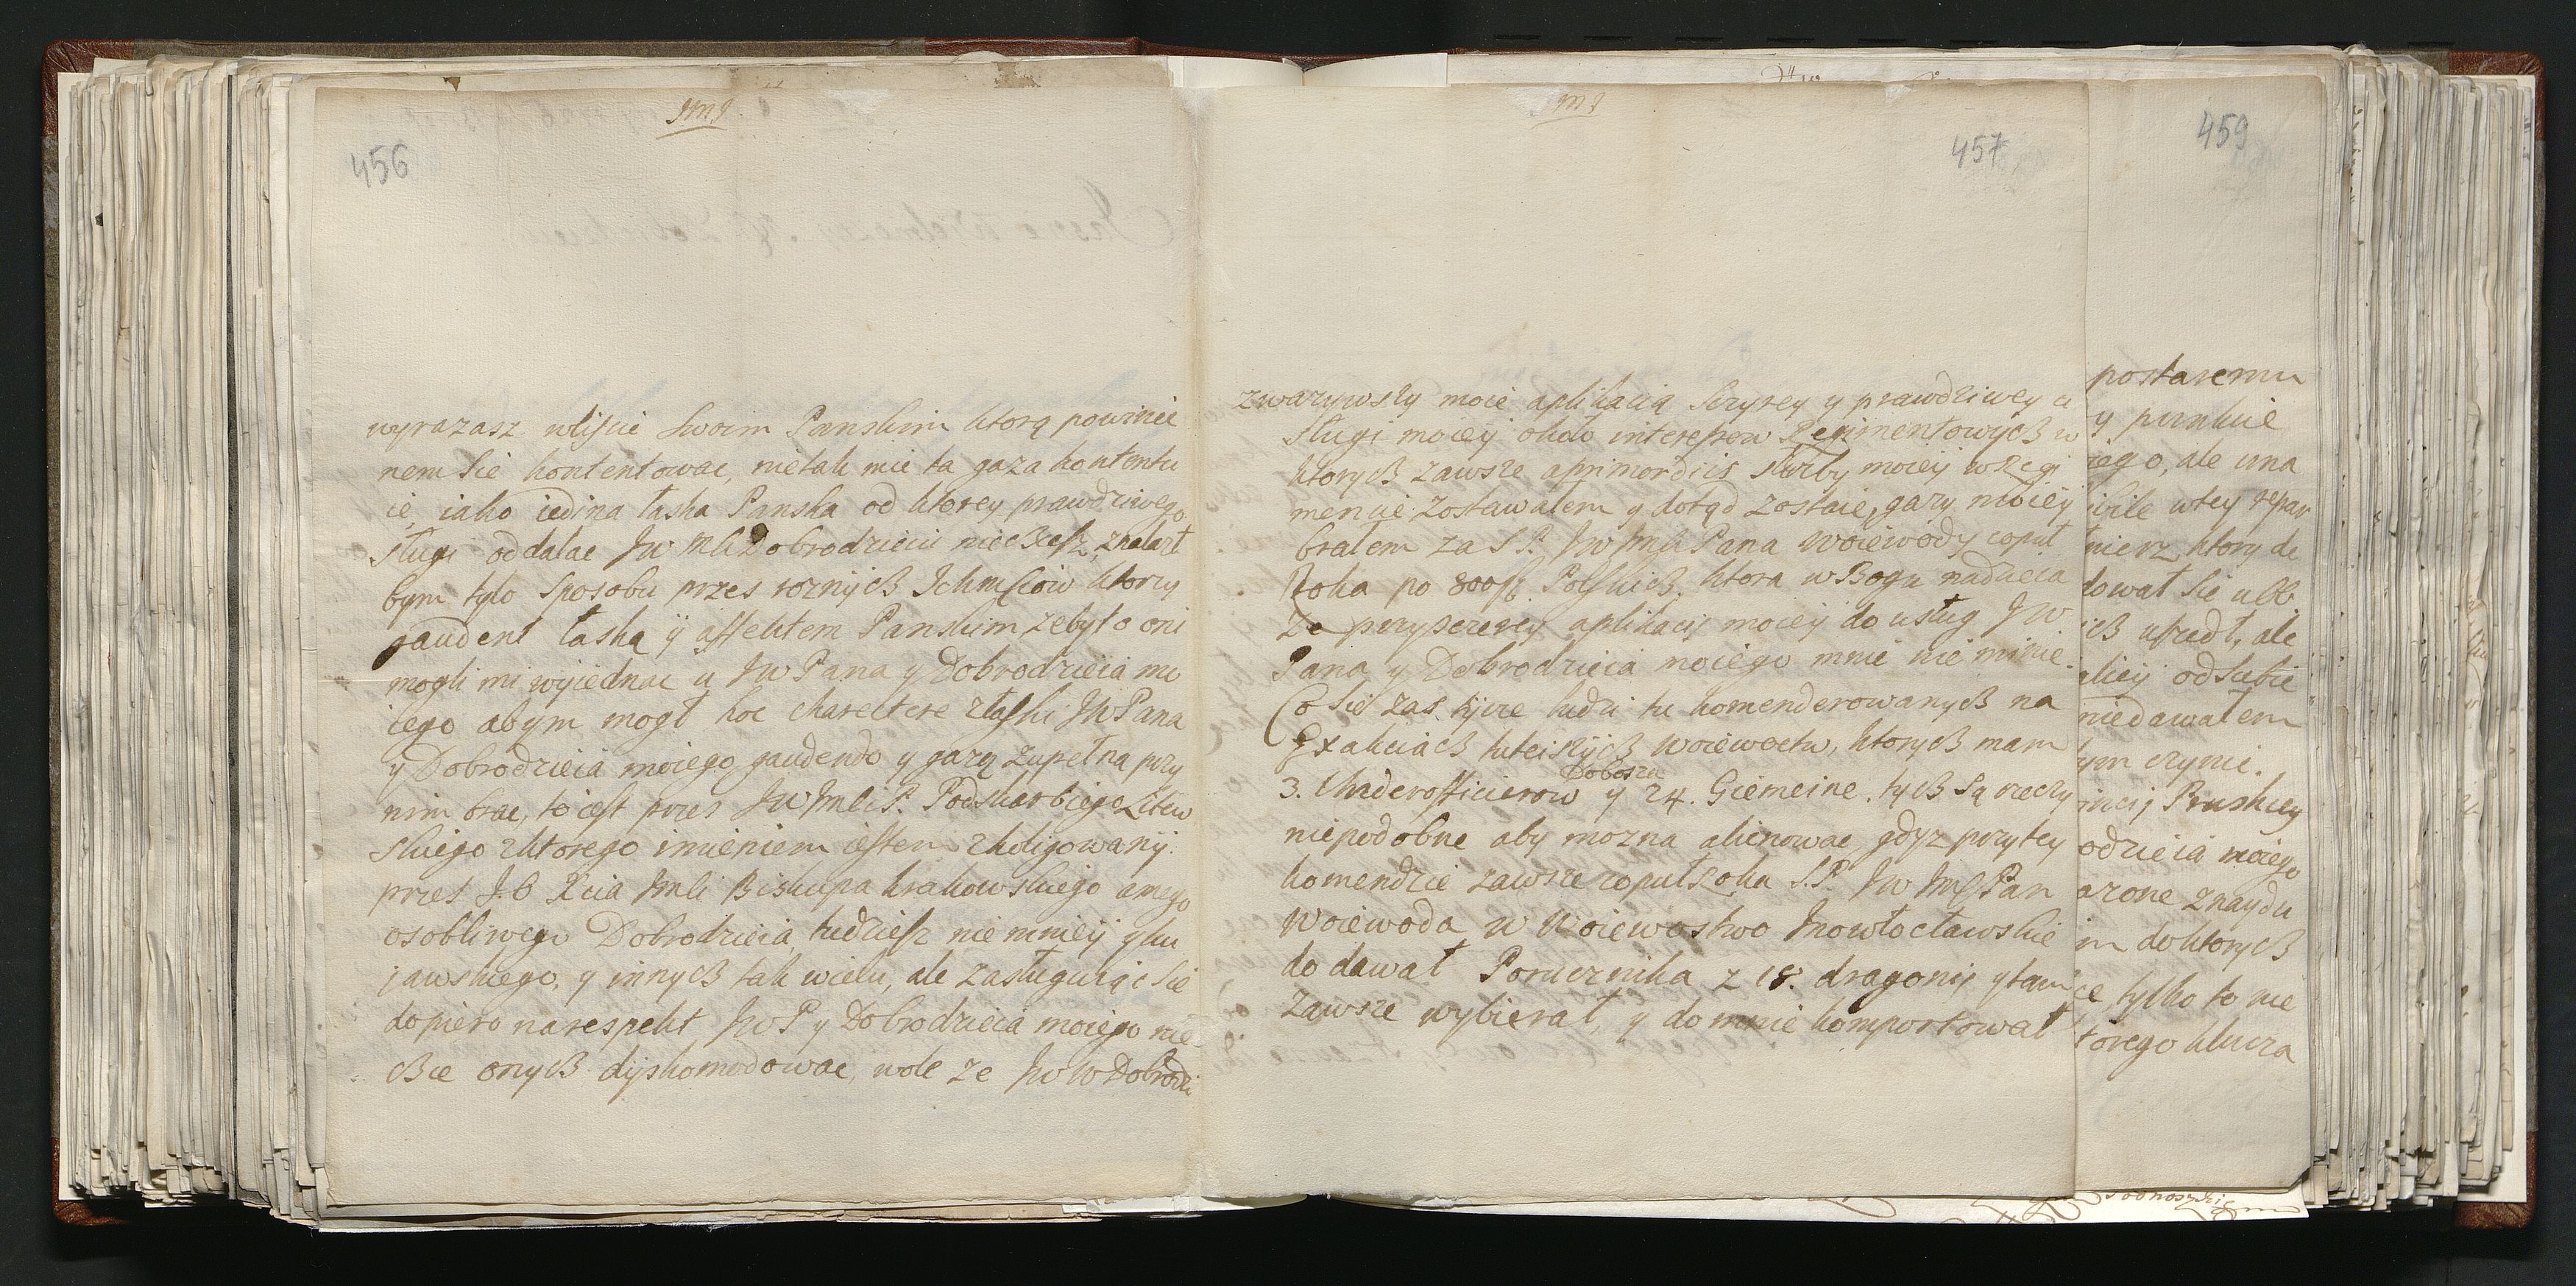 JMJ
456
wyrazasz wliscie swoim Panskim ktorą powinie
nem sie kontentowac, nietak mie ta gaza kontentu
ie, iako iedina łaska Panska od ktorey prawdziwego
sługi oddalac JW Mli Dobrodzieiu niechcesz, znalazł
bym tylo sposobu przes roznych Ichmsciow ktorzy
gaudent łaską y affektem Panskim zebyto oni
mogli mi wyiednac u JW Pana y Dobrodzieia mo
iego abym mogł hoc charectere złaski JW Pana
y Dobrodzieia moiego gaudendo y gazą zupełna przy
nim brac, to iest przes JW Jmli P. Podskarbiego Litew
skiego zktorego imieniem iestem zkoligowany.
przes J. O Xcia Jmli Biskupa krakowskiego amego
osobliwego Dobrodzieia, tudziesz nie mnieÿ y ku
jawskiego, y innych tak wielu, ale zasługuiąc sie
dopiero na respekt JWP y Dobrodzieia moiego nie
chce onych dyskomodowac, wole ze JW W Dobrodzi
MJ
457
zwazywszy moie aplikacią szyrey y prawdziwey
sługi moiey około interessow Regimentowych w
ktorych zawsze a primordiis służby moiey w Regi
mencie zostawałem y dotąd zostaie, gazy moieÿ
brałem za S P. JW Jmli Pana Woiewody coput
Roka po 800 fl. Polskich. ktora w Bogu nadzieia
ze przyszczerey aplikacij moieÿ do usług JW
Pana y Dobrodzieia moiego mnie nie minie.
Co sie zas tycze ludzi tu komenderowanych na
Exakciach tuteiszych woiewoctw, ktorych mam
Dobosza
3. Underofficierow y 24. Giemeine. tych są rzeczy
niepodobne aby mozna alienowac gdyz przytey
komendzie zawsze coput Roka S. P. JW Jmsc Pan
Woiewoda w Woiewostwo Jnowłocławskie
dodawał Porucznika z 18. dragonij y tam
zawsze wybierał, y do mnie komportował
459
postaremu
y punkcie
iego, ale una
wtey repar
nierz, ktory de
dował sie ubb
ich uszedł, ale
odsiebie
niedawałem
ym czyni.
Pruskiey
odzieia moiego
arone znaydu
m doktorych
ce, tylko to nie
torego klucza